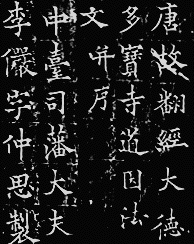 唐故翻經大德
多寶寺道因法
文并序
中臺司藩大夫
李儼字仲思製